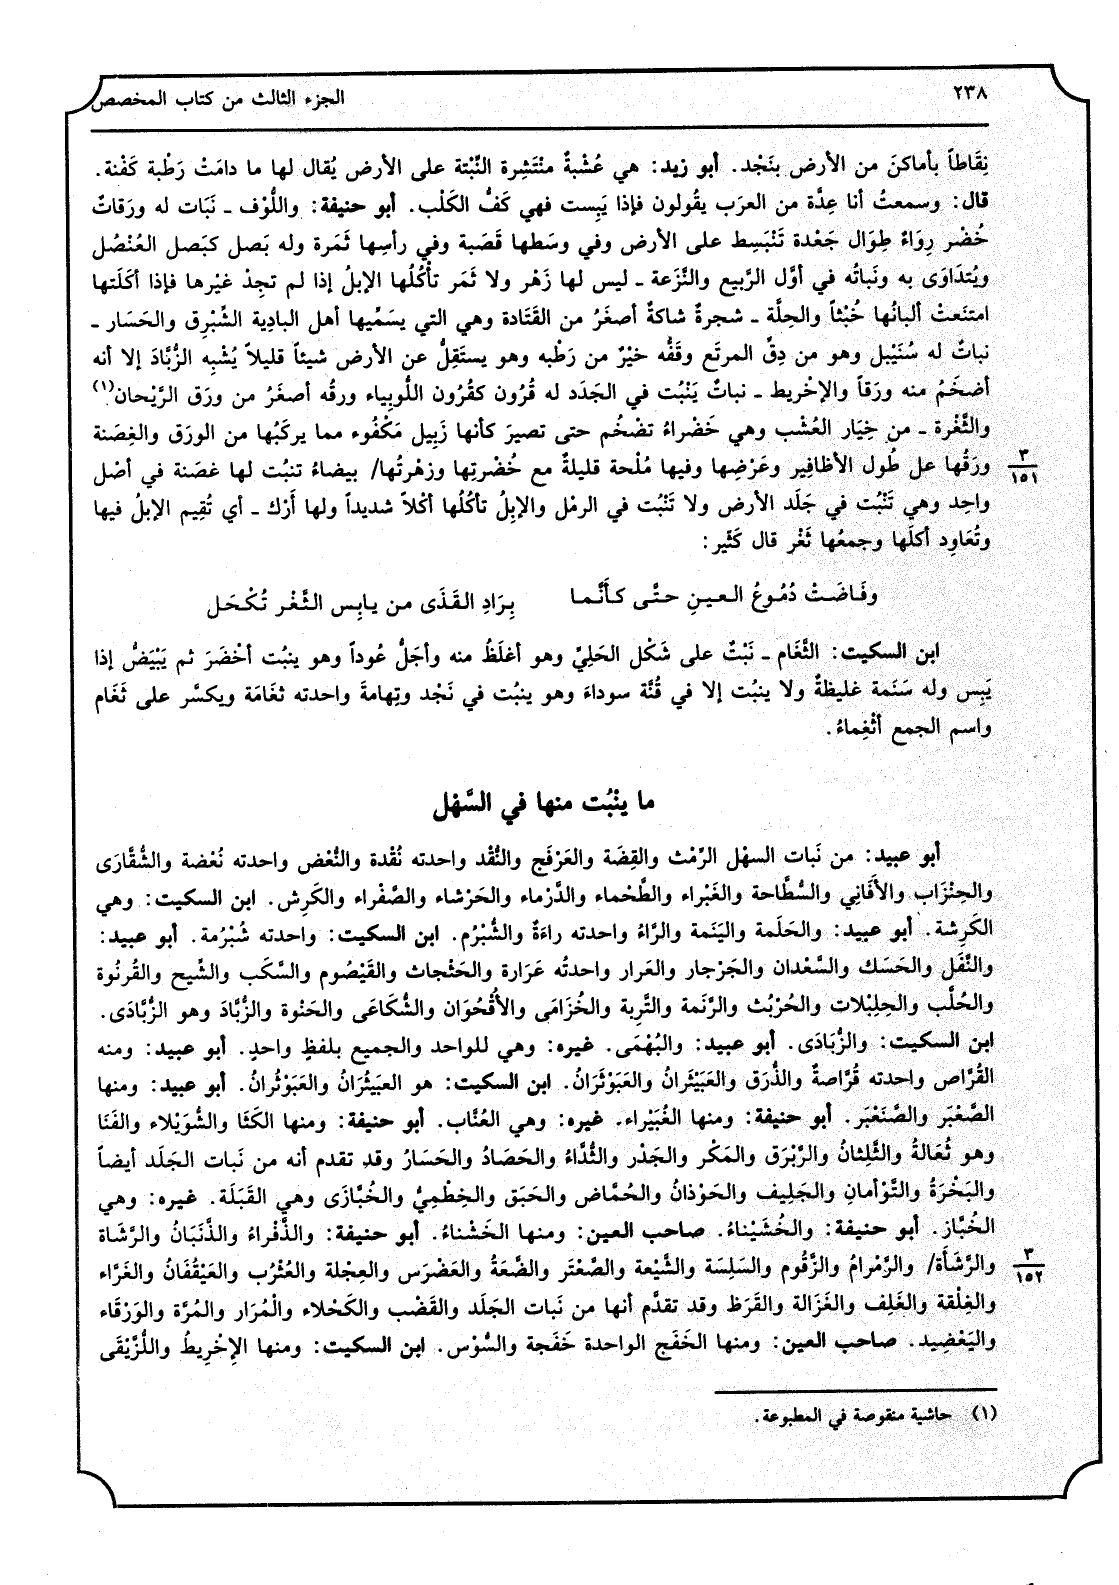 ٢٣٨
الجزء الثالث من كتاب المخصص
نِقَاطاً بأماكنَ من الأرض بنَجْد. أبو زيد: هي عُشْبةٌ منْتَشِرة النِّبْتة على الأرض يُقال لها ما دامَتْ رَطْبة كَفْنة.
قال: وسمعتُ أنا عِدَّة من العرَب يقُولون فإذا يَبِست فهي كَفُّ الكَلْب. أبو حنيفة: واللُّوْف ـ نَبَات له ورَقاتٌ
خُضْر رِوَاءٌ طِوَال جَعْدة تَنْبَسِط على الأرض وفي وسَطها قَصَبة وفي رأسِها ثَمَرة وله بَصل كبَصل العُنْصُل
ويُتدَاوَى به ونَباتُه في أوَّل الرَّبيع والنَّزَعة ـ ليس لها زَهْر ولا ثَمَر تأكُلُها الإبلُ إذا لم تجِدْ غيْرها فإذا أكَلَتها
امتنَعتْ ألبانُها خُبْثاً والحِلَّة ـ شجرةٌ شاكةٌ أصغَرُ من القَتَادة وهي التي يسَمِّيها أهل البادِية الشِّبْرِق والحَسَار ـ
نباتٌ له سُنَيْبل وهو من دِقِّ المرتَع وقَفُّه خيْرٌ من رَطْبه وهو يستَقِلُّ عن الأرض شيئاً قليلاً يُشْبِه الزُّبَّادَ إلا أنه
أضخَمُ منه ورَقاً والإخْريط ـ نباتٌ يَنْبُت في الجَدَد له قُرُون كقُرُون اللُّوبِياء ورقُه أصغَرُ من ورَق الرَّيْحان(١)
والثَّغْرة ـ من خِيَار العُشْب وهي خَضْراءُ تضْخُم حتى تصيرَ كأنها زَبِيل مَكْفُوء مما يركَبُها من الورَق والغِصَنة
ورَقُها عل طُول الأظَافِير وعَرْضِها وفيها مُلْحة قليلةٌ مع خُضْرتِها وزهْرتُها/ بيضاءُ تنبُت لها غصَنة في أصْل
٣
١٥١
واحِد وهي تَنْبُت في جَلَد الأرض ولا تَنْبُت في الرمْل والإبلُ تأكُلُها أكْلاً شديداً ولها أَرْك ـ أي تُقِيم الإبلُ فيها
وتُعَاوِد أكلَها وجمعُها ثَغْر قال كَثَير:
وفَـاضَـتْ دُمُـوعُ الـعيـنِ حـتَّى كـأنَّـما بِـرَادِ الـقَـذَى مـن يـابِـس الـثَّـغْـر تُـكْـحَـل
ابن السكيت: الثَّغَام ـ نَبْتٌ على شَكْل الحَلِيِّ وهو أغلَظُ منه وأجَلُّ عُوداً وهو ينبُت أخْضَرَ ثم يَبْيَضُّ إذا
يَبِس وله سَنَمة غليظةٌ ولا ينبُت إلا في قُنَّة سوداءَ وهو ينبُت في نَجْد وتِهامةَ واحدته ثغَامَة ويكسَّر على ثَغَام
واسم الجمع أثْغِماءُ.
ما ينْبُت منها في السَّهْل
أبو عبيد: من نَبات السهْل الرِّمْث والقِضَة والعَرْفَج والنُّقْد واحدته نُقْدة والنُّعْض واحدته نُعْضة والشُّقَّارَى
والحِنْزَاب والأَفَانِي والسُّطَّاحة والغَبْراء والطَّحْماء والدَّرْماء والحَرْشاء والصَّفْراء والكَرِش. ابن السكيت: وهي
الكَرِشة. أبو عبيد: والحَلَمة واليَنَمة والرَّاءُ واحدته راءَةٌ والشُّبْرُم. ابن السكيت: واحدته شُبْرُمة. أبو عبيد:
والنَّفَل والحَسَك والسَّعْدان والجَرْجار والعَرار واحدتُه عَرَارة والحَثْجاث والقَيْصُوم والسَّكَب والشِّيح والقُرنُوة
والحُلَّب والحِلِبْلاب والحُرْبُث والرَّنَمة والتَّرِبة والخُزَامَى والأُقْحُوَان والشُّكَاعَى والحَنْوة والزُّبَّادَ وهو الزُّبَّادَى.
ابن السكيت: والزُّبَادَى. أبو عبيد: والبُهْمَى. غيره: وهي للواحد والجميع بلفظٍ واحدٍ. أبو عبيد: ومنه
القُرَّاص واحدته قُرَّاصةٌ والذُّرَق والعَبَيْثَرانُ والعَبَوْثَرَانُ. ابن السكيت: هو العبَيثُرَانُ والعَبَوْثُرانُ. أبو عبيد: ومنها
الصَّعْبَر والصَّنَعْبَر. أبو حنيفة: ومنها الغُبَيْراء. غيره: وهي العُنَّاب. أبو حنيفة: ومنها الكَثَا والشُّوَيْلاء والفَنَا
وهو ثُعَالةُ والثَّلِثانُ والرَّبْرَق والمَكْر والجَدْر والثُّدَّاءُ والحَصَادُ والحَسَارُ وقد تقدم أنه من نَبات الجَلَد أيضاً
والبَخْرَةُ والتَّوْأمانِ والجَلِيف والحَوْذانُ والحُمَّاض والحَبَق والخِطْمِيُّ والخُبَّازَى وهي القَبَلَة. غيره: وهي
الخُبَّاز. أبو حنيفة: والخُشَيْناءُ. صاحب العين: ومنها الخَشْناءُ. أبو حنيفة: والذَّفْراءُ والذَّنَبَانُ والرَّشَاة
والرَّشَأَة/ والرَّمْرامُ والزَّقُوم والسَلِسَة والشَّيْعة والصَّعْتَر والضَّعَةُ والعَضْرَس والعِجْلة والعُثْرُب والعَيْقُفَانُ والغَرَّاء
٣
١٥٢
والغِلْقة والغَلِف والغَزَالة والقَرَظ وقد تقدَّم أنها من نَبات الجَلَد والقَضْب والكَحْلاء والْمُرَار والمُرَّة والوَرْقَاء
واليَعْضِيد. صاحب العين: ومنها الخَفَج الواحدة خَفَجة والسُّوْس. ابن السكيت: ومنها الإخْرِيطُ واللُّزَّيْقَى
(١) حاشية منقوصة في المطبوعة.